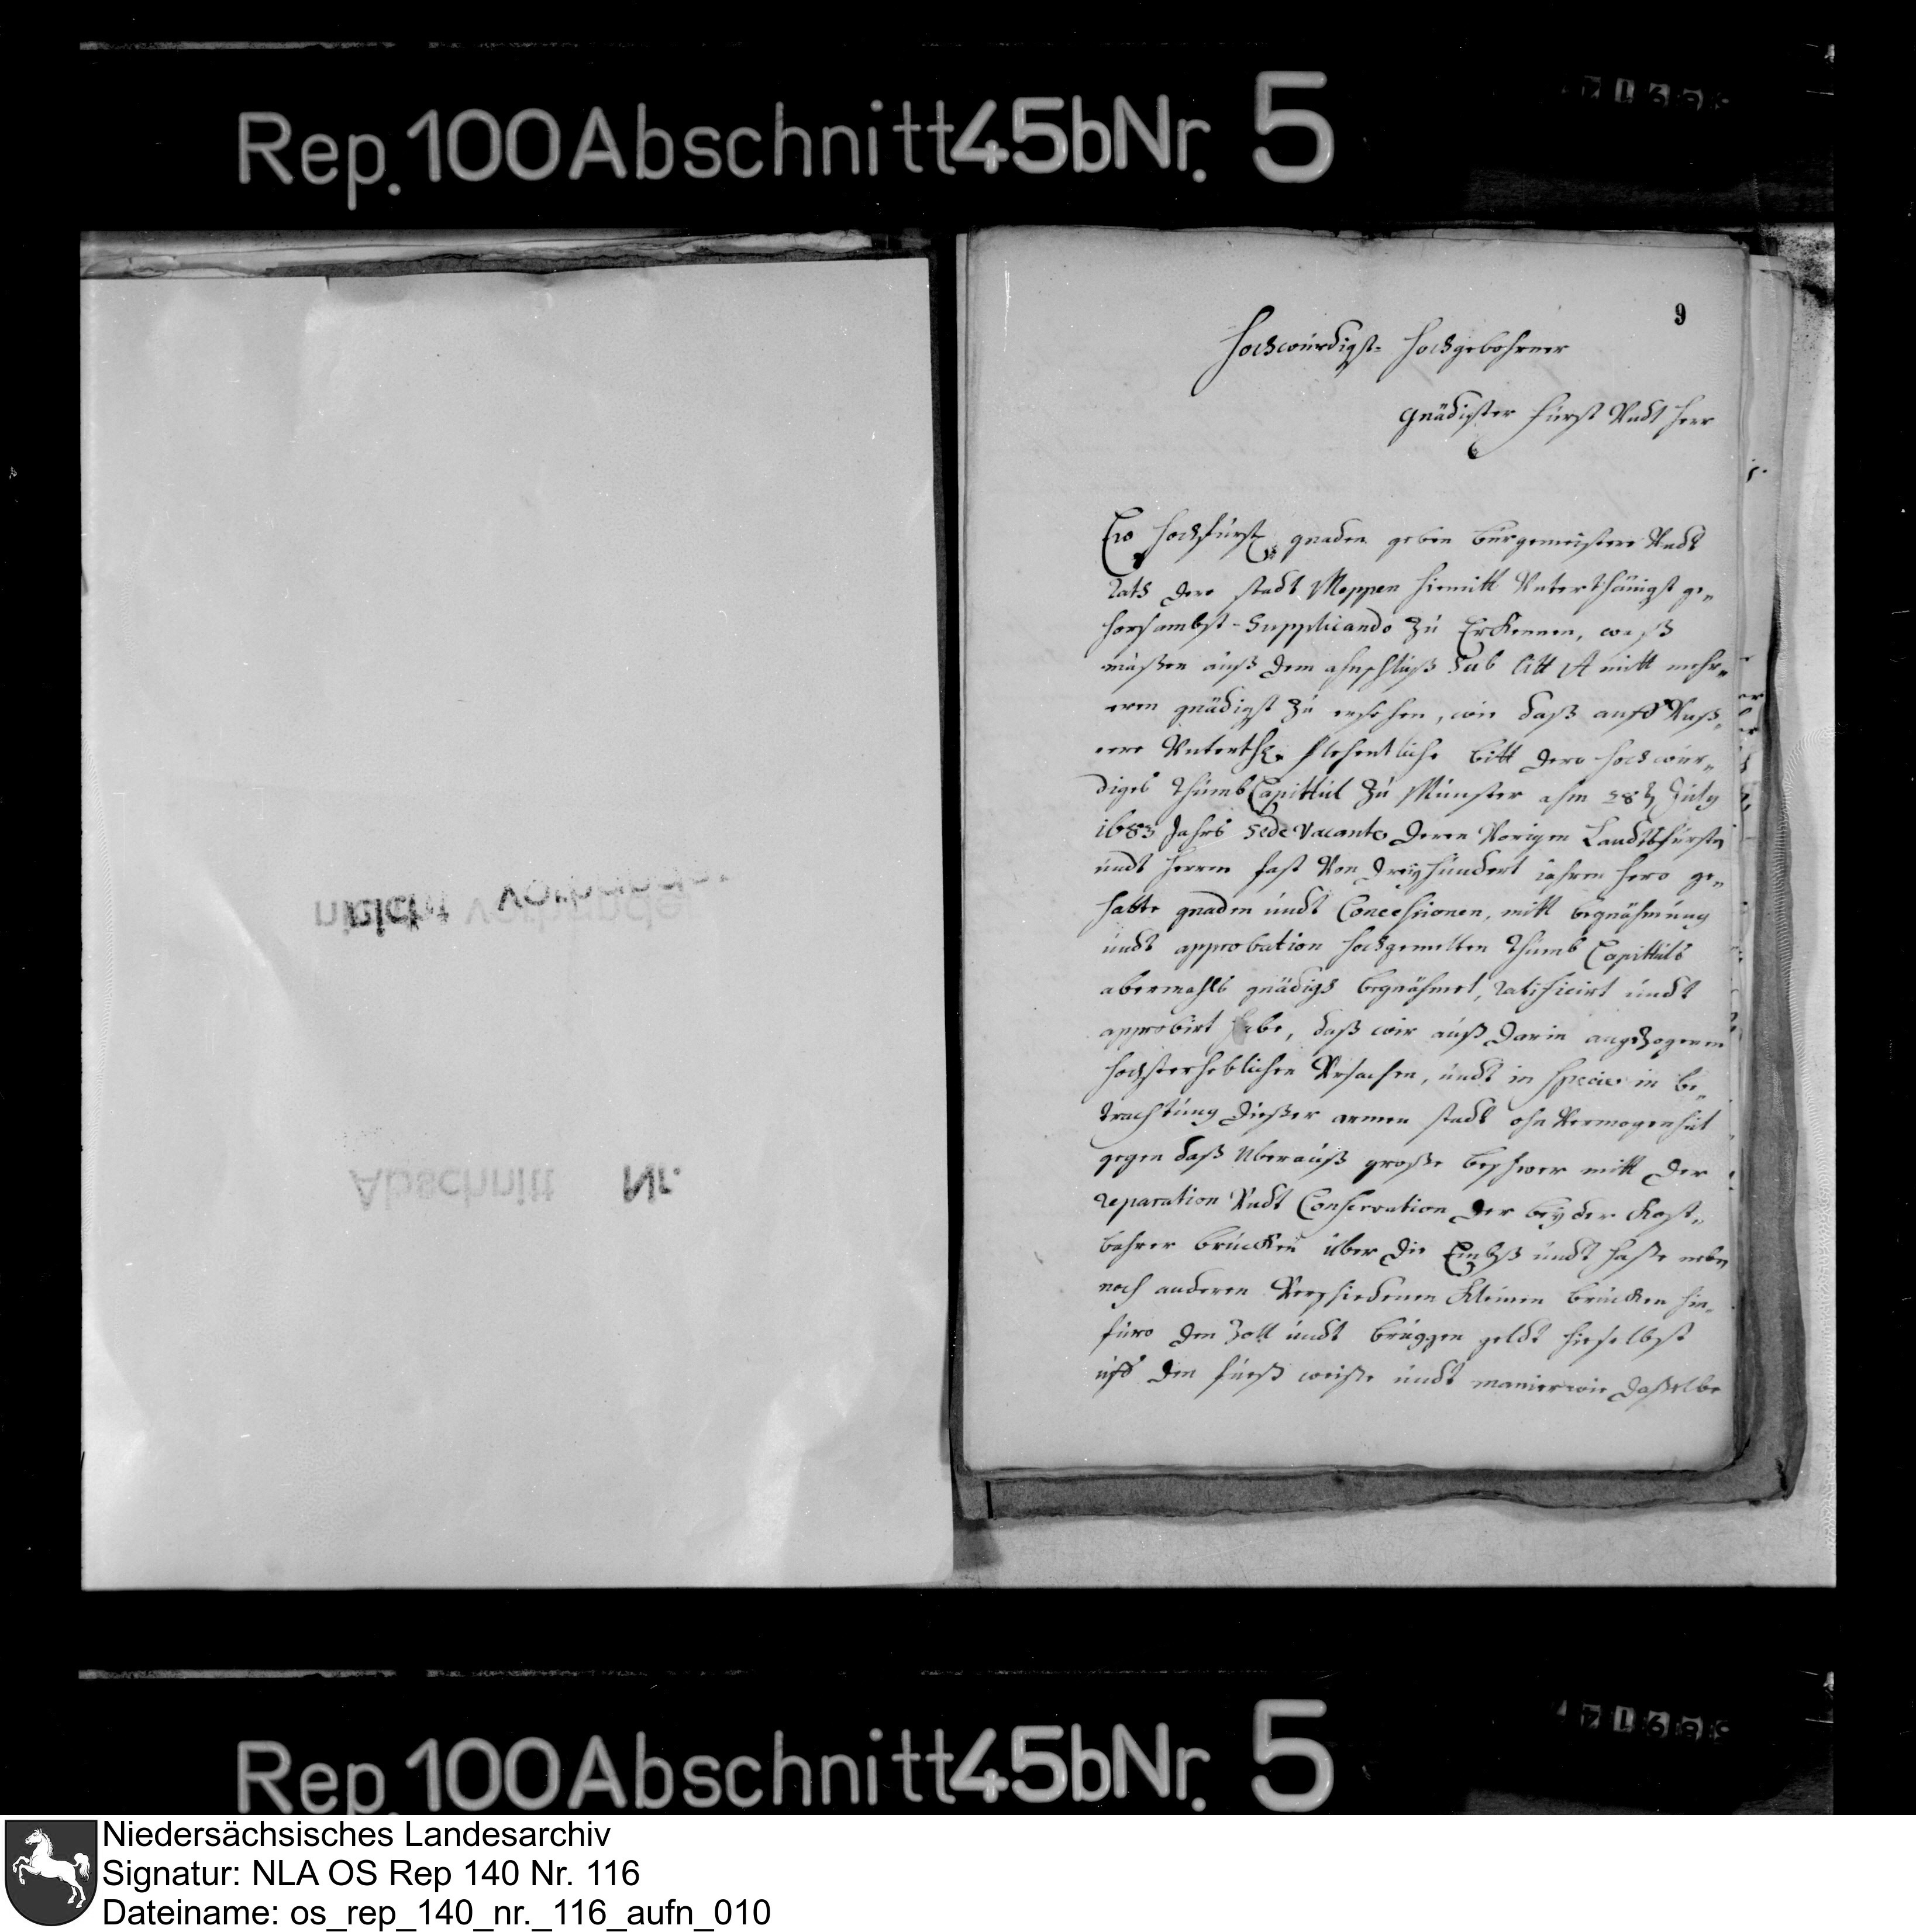 Rep. 100 Abschnitt 45b Nr. 5
nicht vorhanden
Abschnitt Nr.
9
Hochwürdigst- Hochgebohrner
Gnädigster Fürst Undt Herr
Ew Hochfürstl. gnaden geben bürgemeistere Undt
Rath dero stadt Meppen hiemitt Unterthänigst ge„
horsambst-Supplicando zu Erkennen, waß
maßen auß dem ahnschluß Sub litt A mitt mehr„
erem gnädigst zu ersehen, wie daß auff Unß„
ere Unterth. flehentliche bitt dero hochwür„
diges ThumbCapittul zu Münster ahm 28t July
1683 Jahrs Sede Vacante deren Vorigen Landtsfürsten
undt Herren fast Von dreyhundert jahren hero ge„
habte gnaden undt Concessionen, mitt begnähmung
undt approbation hochgemelten Thumb Capittuls
abermahls gnädigs begnähmet, ratificirt undt
approbirt habe, daß wir auß darin angezogenen
hochsterheblichen Ursachen, undt in specie in be„
trachtung dießer armen stadt ohn Vermogenheit
gegen daß Uberauß große beschwer mitt der
reparation Undt Conservation der beyder Kost„
bahrer brücken über die Embß undt Haße neben
noch anderen Verschiedenen Kleinen brücken hin„
füro den Zoll undt brüggen geldt hieselbst
uff den fueß weiße undt manier wie daßelbe
Rep. 100 Abschnitt 45b Nr. 5
Niedersächsisches Landesarchiv
Signatur: NLA OS Rep 140 Nr. 116
Dateiname: os_rep_140_nr._116_aufn_010